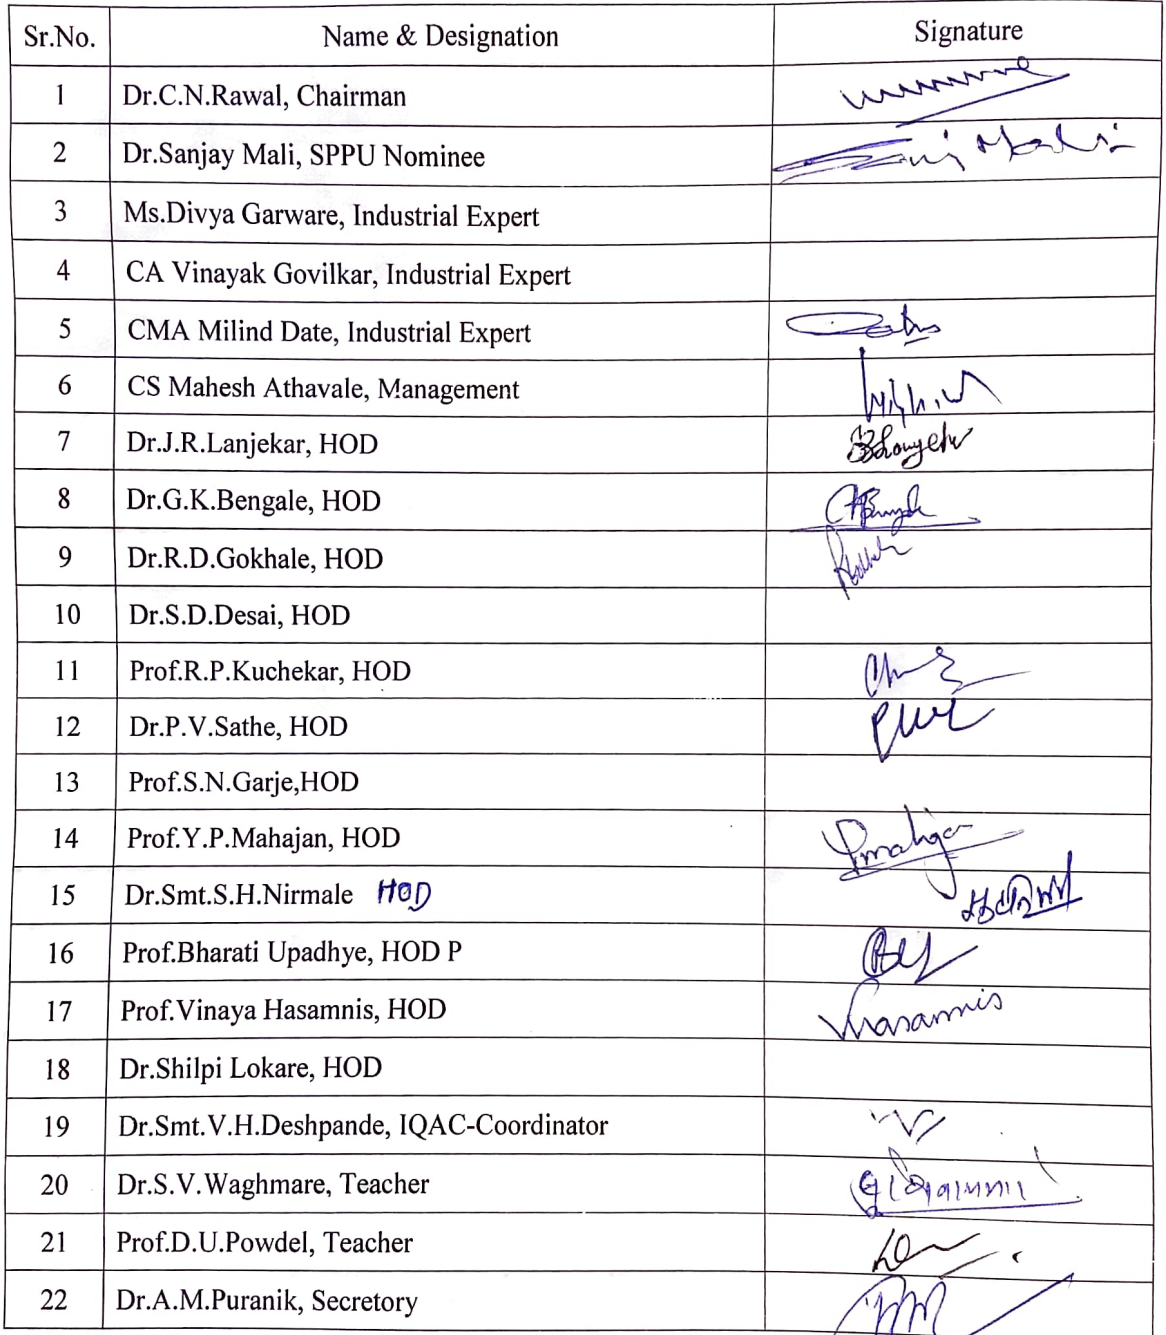 Sr.No. Name & Designation Signature
1 Dr.C.N.Rawal, Chairman
2 Dr.Sanjay Mali, SPPU Nominee
3 Ms.Divya Garware, Industrial Expert
4 CA Vinayak Govilkar, Industrial Expert
5 CMA Milind Date, Industrial Expert
6 CS Mahesh Athavale, Management
7 Dr.J.R.Lanjekar, HOD
8 Dr.G.K.Bengale, HOD
9 Dr.R.D.Gokhale, HOD
10 Dr.S.D.Desai, HOD
11 Prof.R.P.Kuchekar, HOD
12 Dr.P.V.Sathe, HOD
13 Prof.S.N.Garje,HOD
14 Prof.Y.P.Mahajan, HOD
15 Dr.Smt.S.H.Nirmale HOD
16 Prof.Bharati Upadhye, HOD P
17 Prof.Vinaya Hasamnis, HOD Vhasamnis
18 Dr.Shilpi Lokare, HOD
19 Dr.Smt.V.H.Deshpande, IQAC-Coordinator
20 Dr.S.V.Waghmare, Teacher
21 Prof.D.U.Powdel, Teacher
22 Dr.A.M.Puranik, Secretory